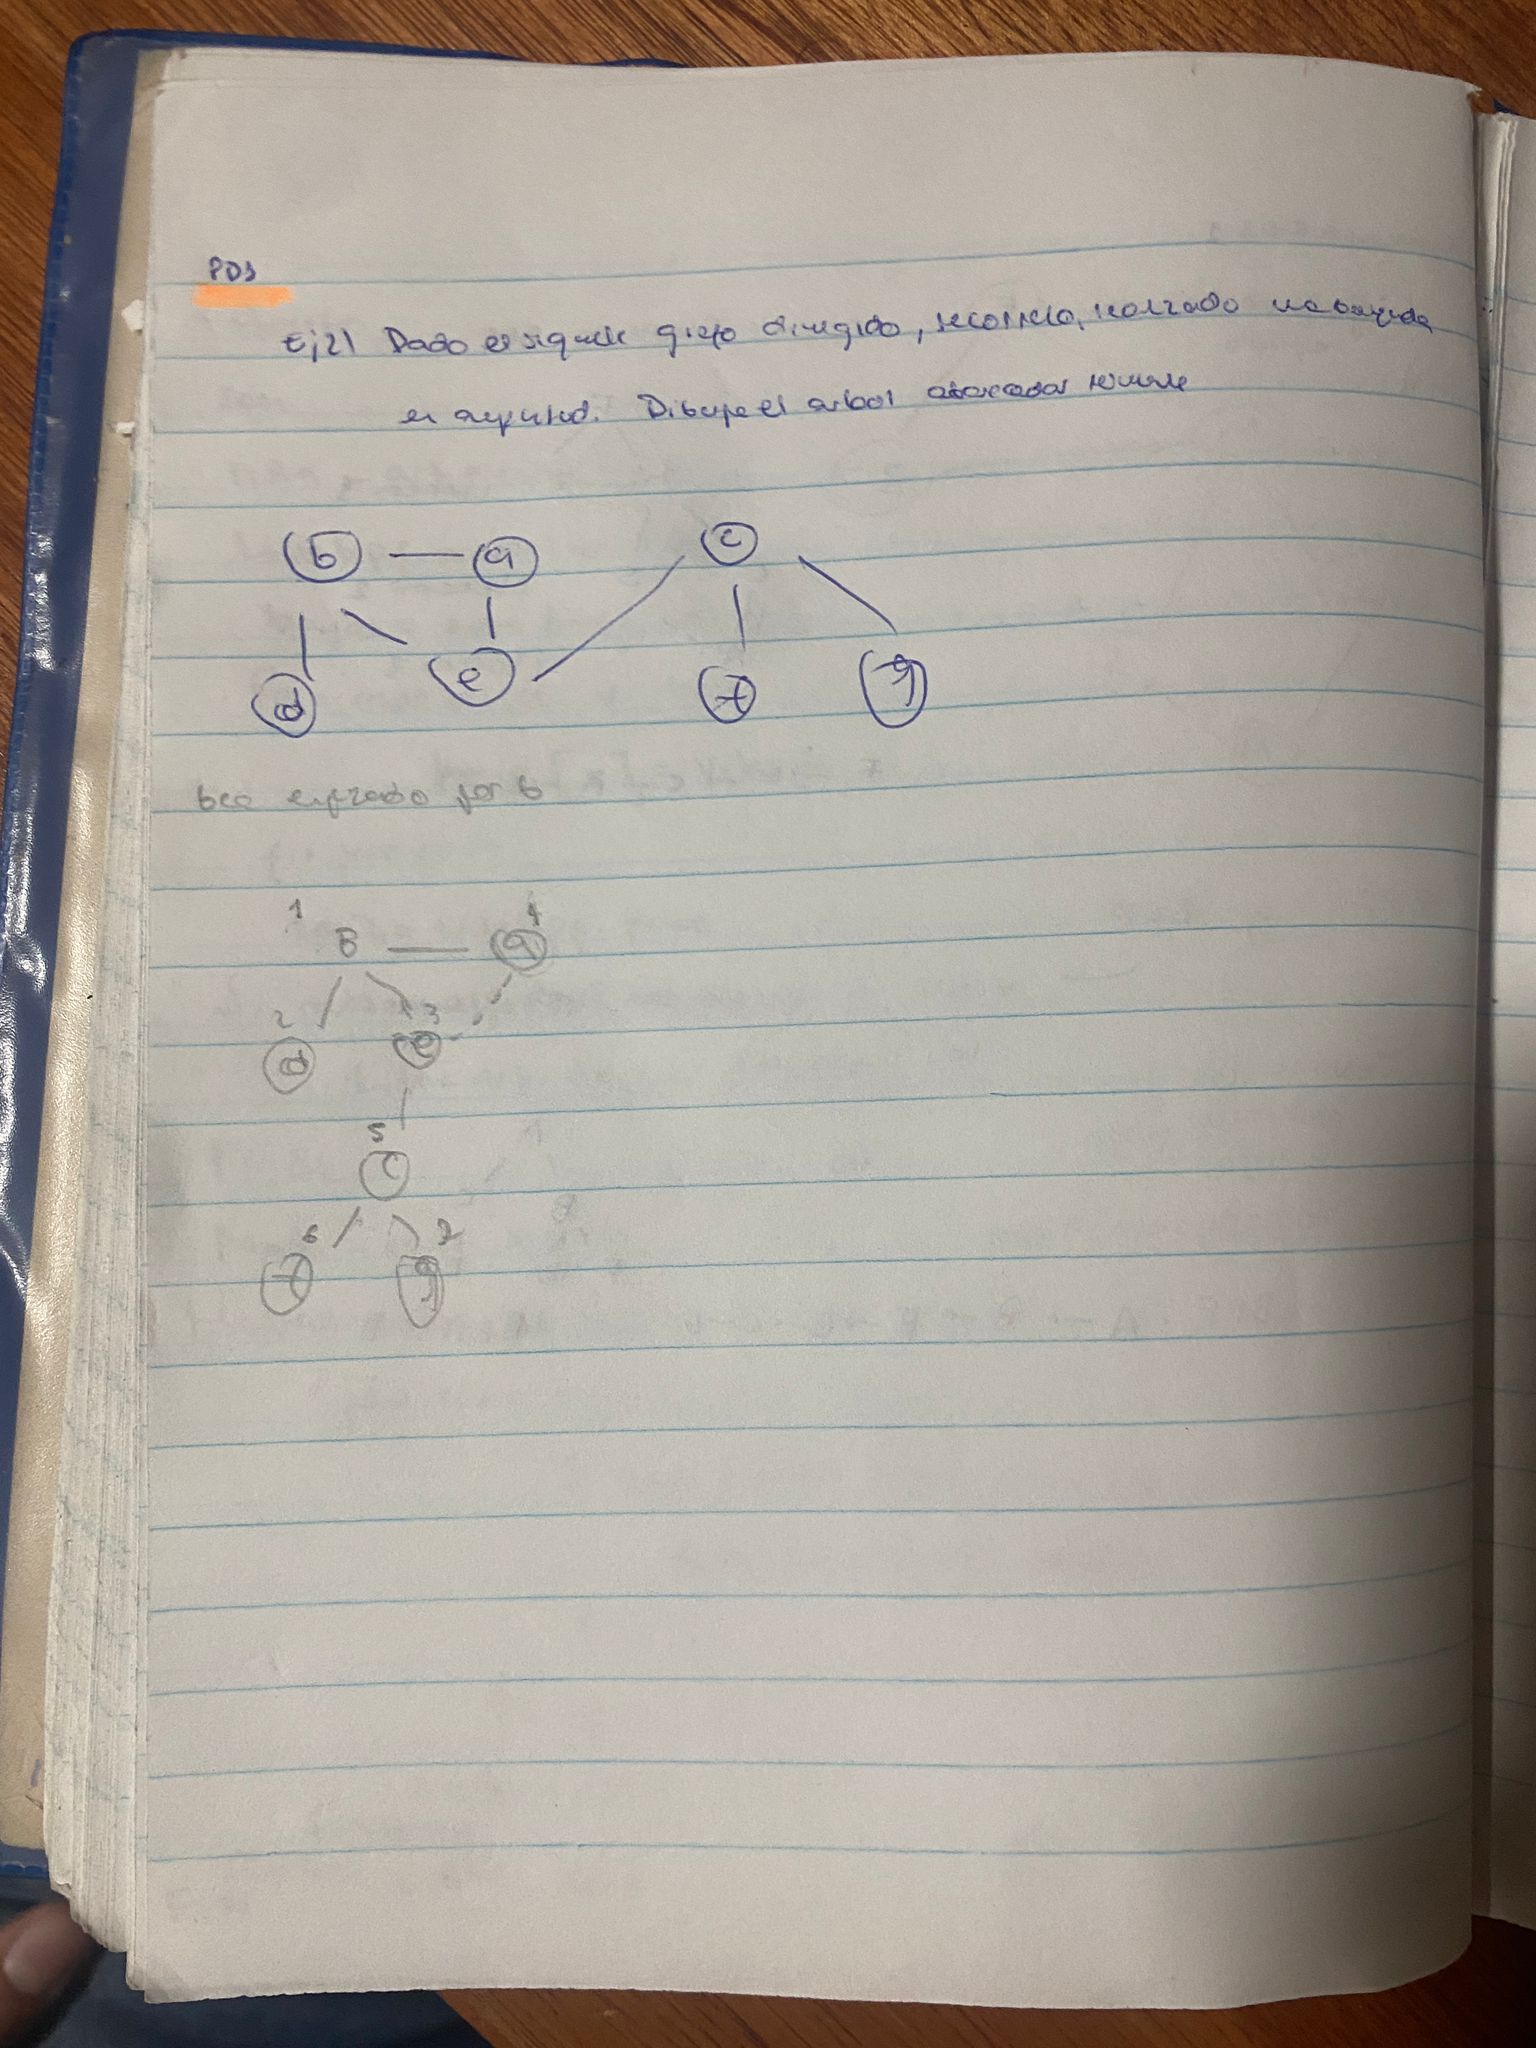 PD3
Ej2) Dado el siguiente grafo dirigido, recorrelo, realzado una busqueda
en amplitud. Dibuje el arbol abarcador
b a c
d e f g
bea empezado por b
1 4
B a
2 3
d e
5
c
6 7
f g